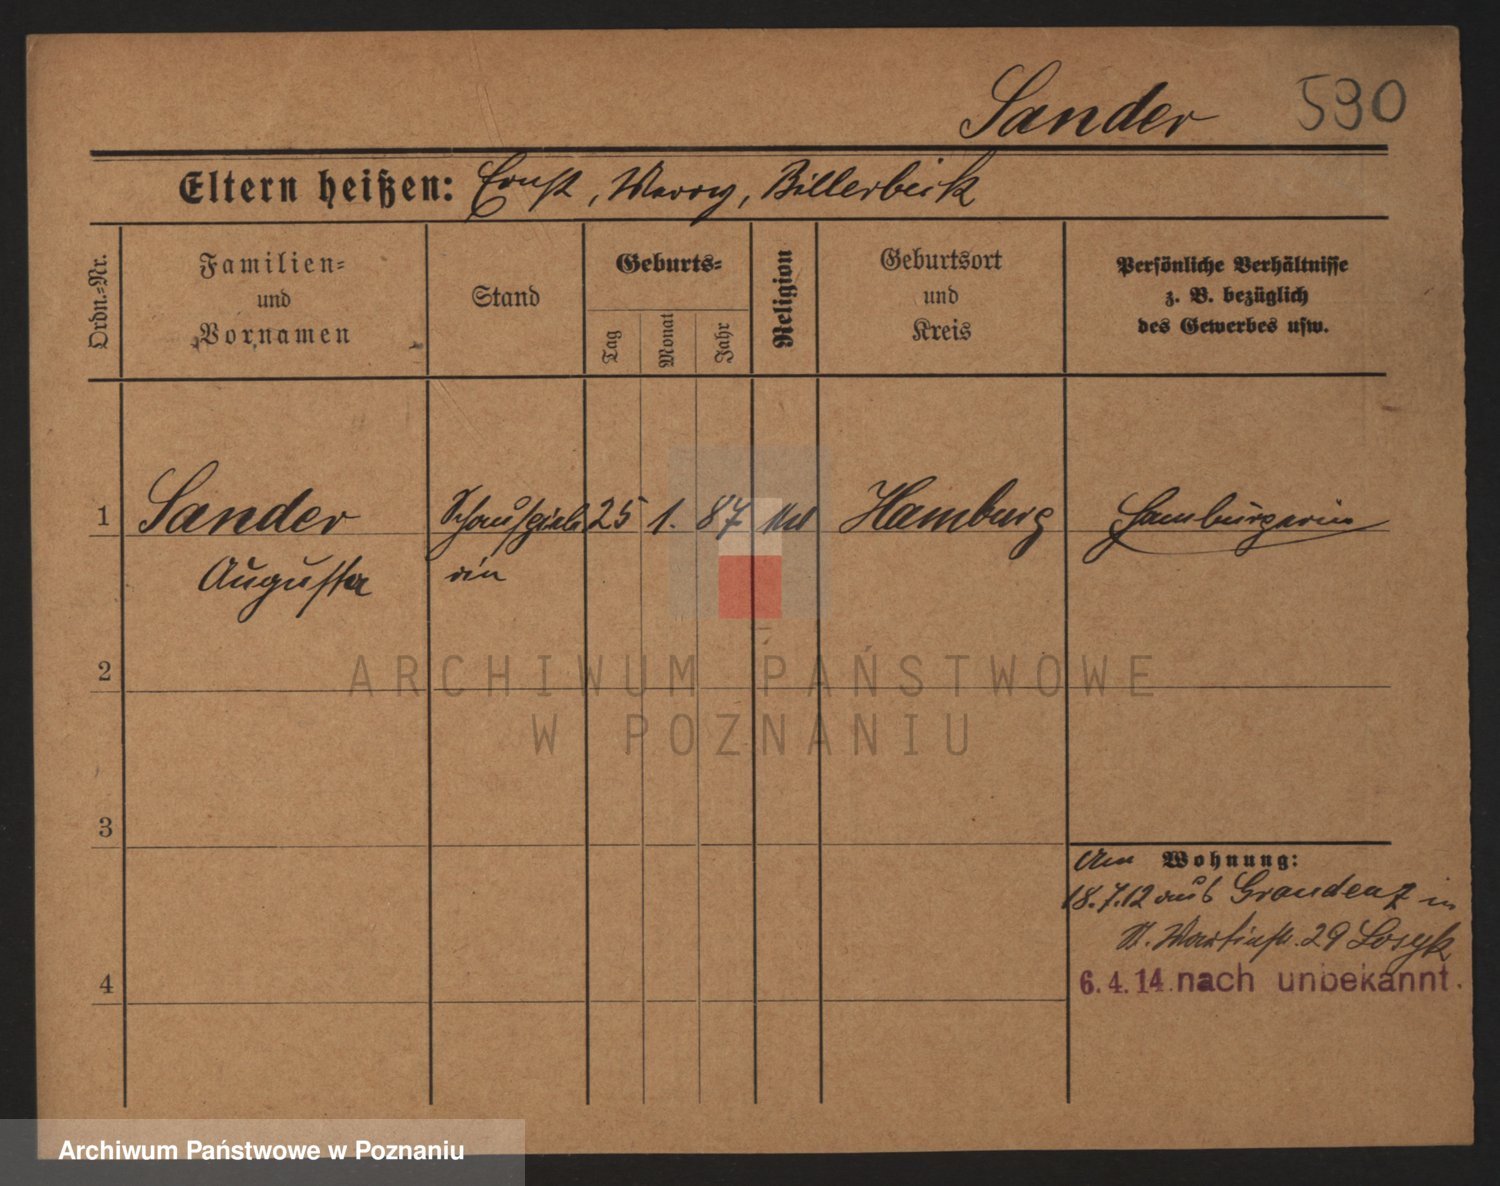 Sander 590
Eltern heißen: Ernst, , Billerbeck
Ordn.=Nr.
Familien=
und
Vornamen
Stand
Geburts=
Tag
Monat
Jahr
Religion
Geburtsort
und
Kreis
Persönliche Verhältnisse
z. B. bezüglich
des Gewerbes usw.
1 Sander Schauspiele 25 1. 87 Hamburg Hamburgerin
Augusta rin
2
3
4
Am Wohnung:
18.7.12 aus Graudenz in
St. Martinstr. 29
6. 4. 14. nach unbekannt.
ARCHIWUM PAŃSTWOWE
W POZNANIU
Archiwum Państwowe w Poznaniu